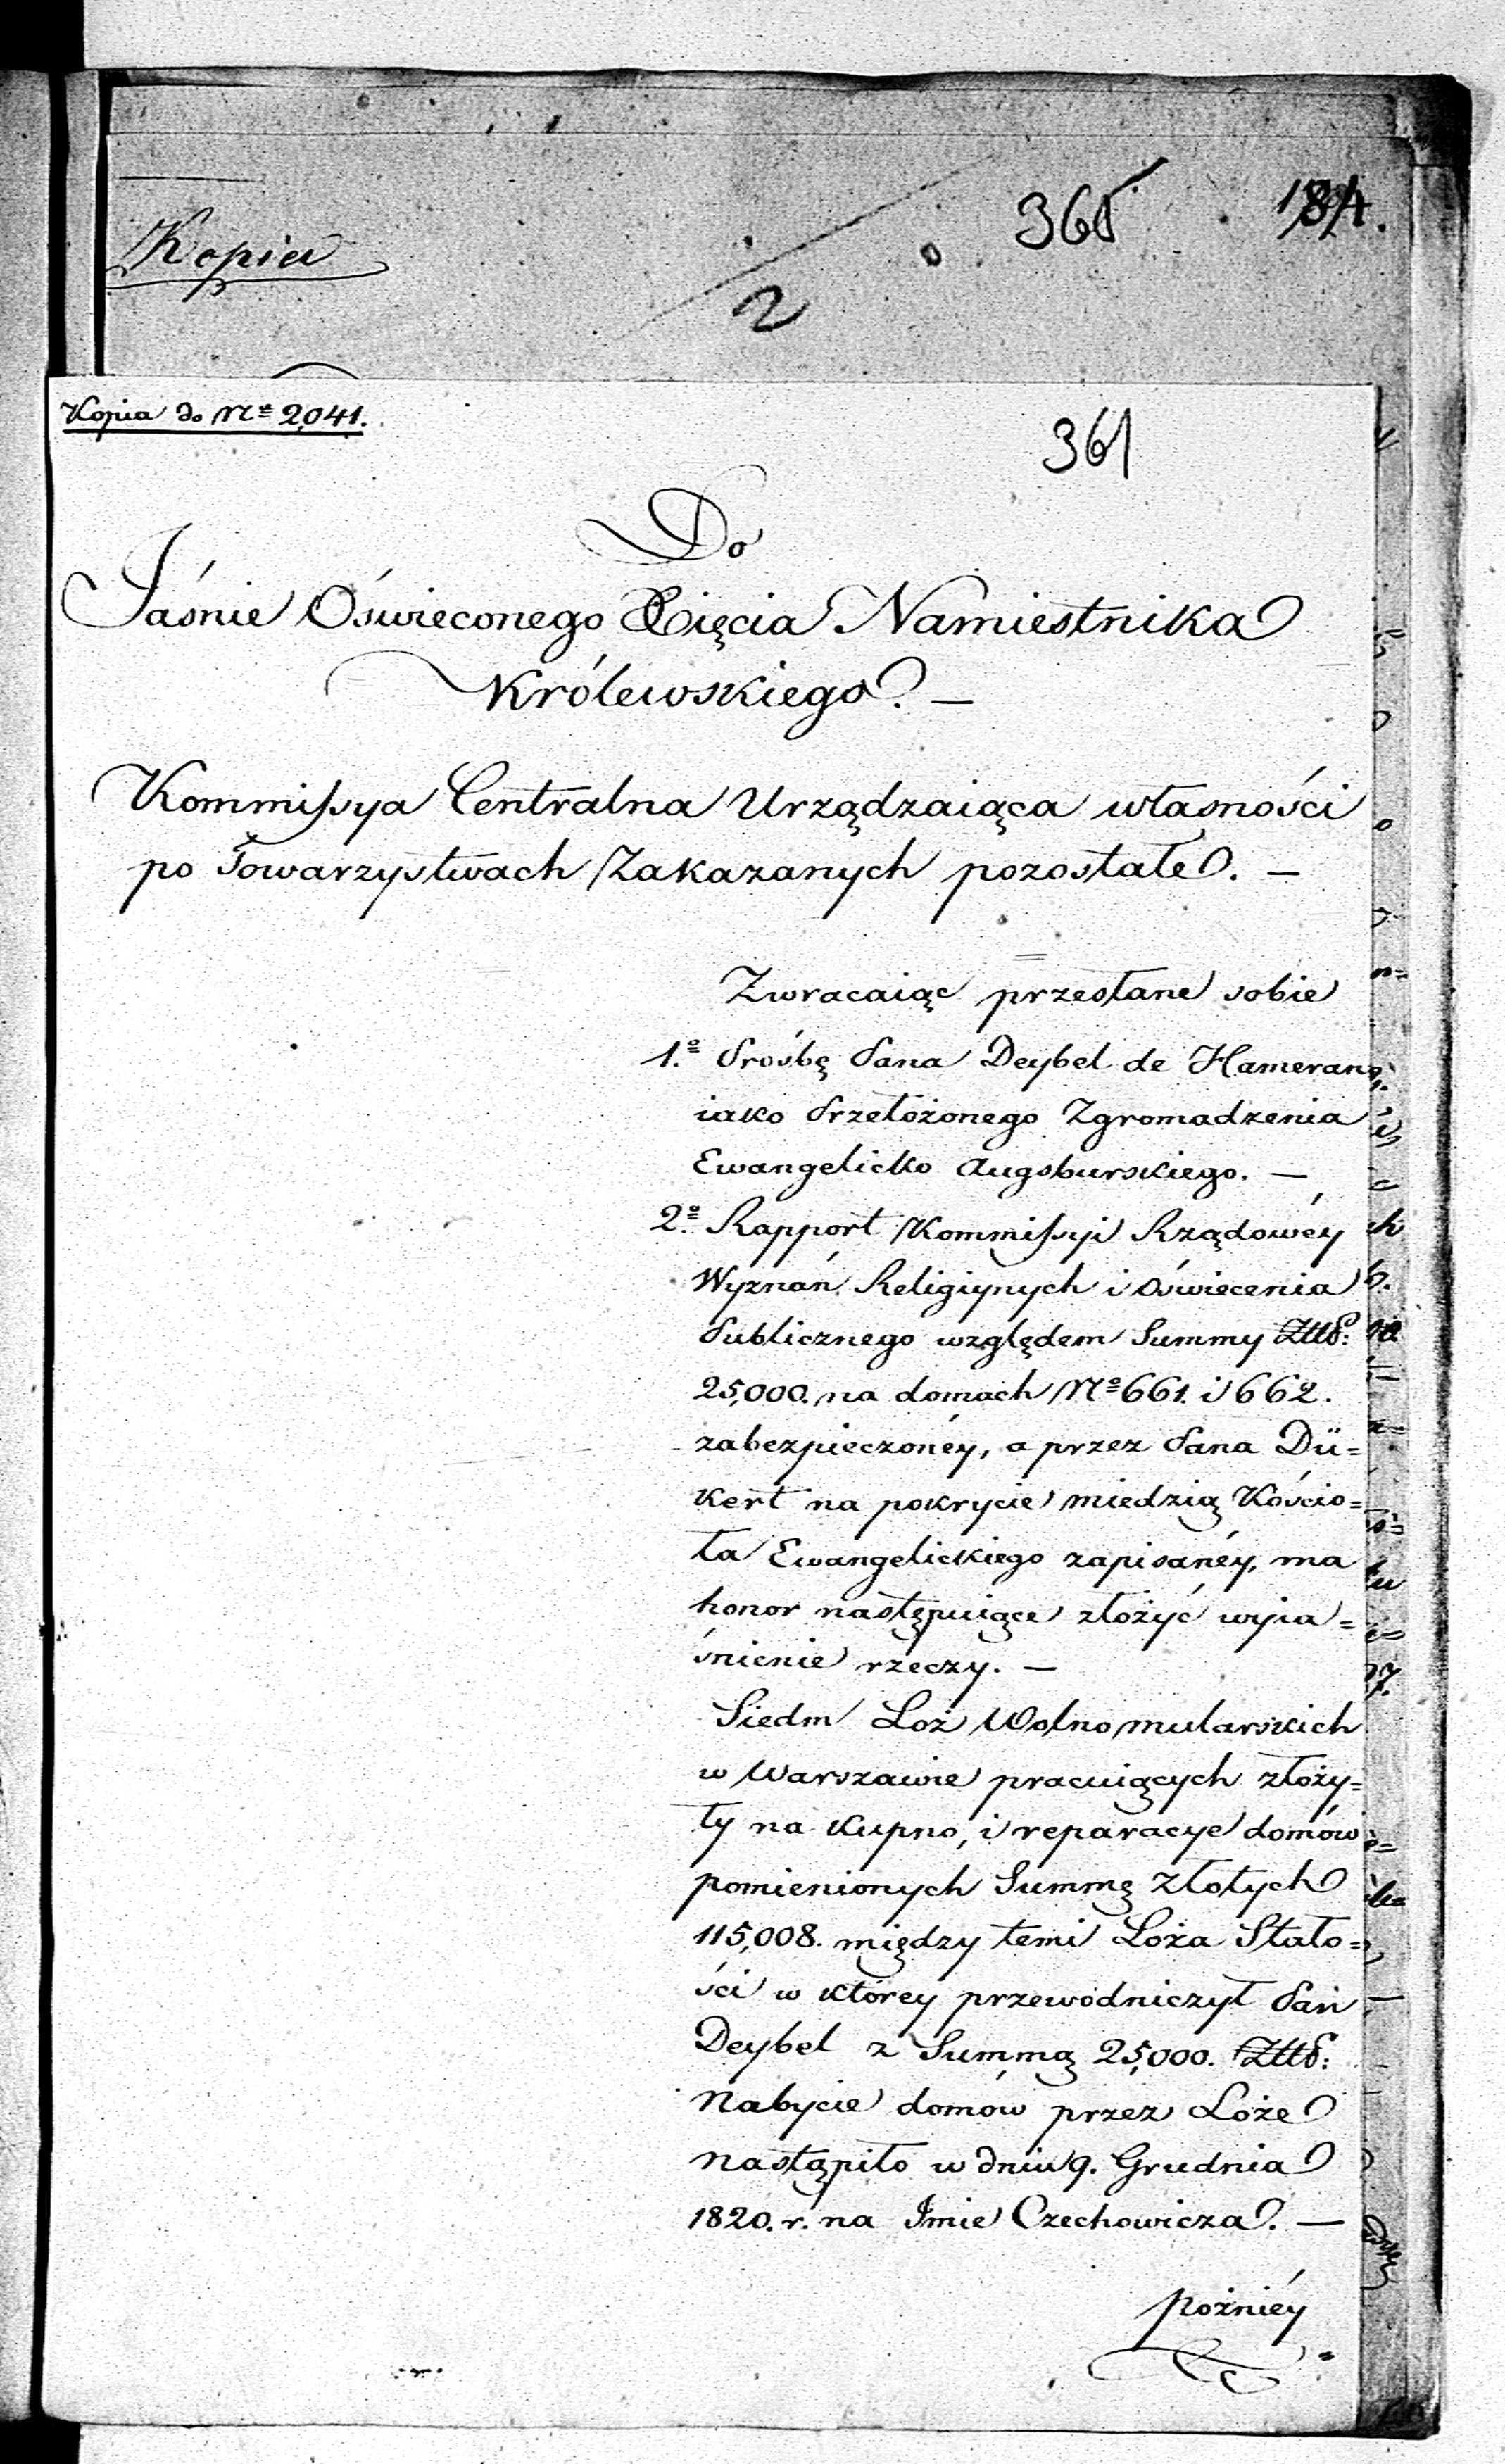 Kopia
2
365
184.
Kopia do Nº 2,041.
361
Do
Jaśnie Oświeconego Xięcia Namiestnika
Królewskiego. —
Kommissya Centralna Urządzaiąca własności
po Towarzystwach Zakazanych pozostałe. —
Zwracaiąc przesłane sobie
1.º Prośbę Pana Deybel de Hameran
iako Przełożonego Zgromadzenia
Ewangelicko Augsburskiego. —
2.º Rapport Kommissyi Rządowéy
Wyznań Religiynych i Oświecenia
Publicznego względem Summy Złł:
25,000. na domach Nº 661. i 662.
zabezpieczonéy, a przez Pana Dü=
kert na pokrycie miedzią Kościo=
ła Ewangelickiego zapisanéy, ma
honor następuiące złożyć wyia=
śnienie rzeczy. —
Siedm Loż Wolno mularskich
w Warszawie pracuiących złoży=
ły na kupno, i reparacye domów
pomienionych Summę złotych
115,008. między temi Loża Stało=
ści w którey przewodniczył Pan
Deybel z Summą 25,000. Złł:
Nabycie domów przez Loże
nastąpiło w dniu 9. Grudnia
1820. r. na Imie Czechowicza. —
pożniéy